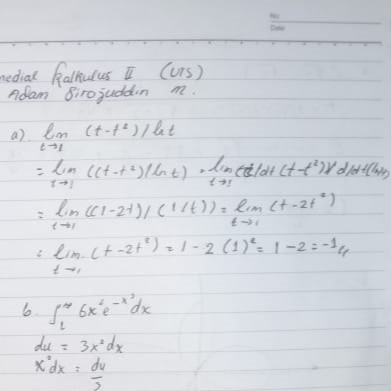 No
Date
medial Kalkulus II (UTS)
Adam Sirojuddin M.
a) lim t→1 (t-t²)/ln t
= lim t→1 ((t-t²)/ln t) = lim t→1 (d/dt (t-t²)) / d/dt(ln t)
= lim t→1 ((1-2t)/(1/t)) = lim t→1 (t-2t²)
= lim t→1 (t-2t²) = 1-2(1)² = 1-2 = -1
b. ∫ 6x²e^-x³ dx
du = 3x² dx
x² dx = du/3